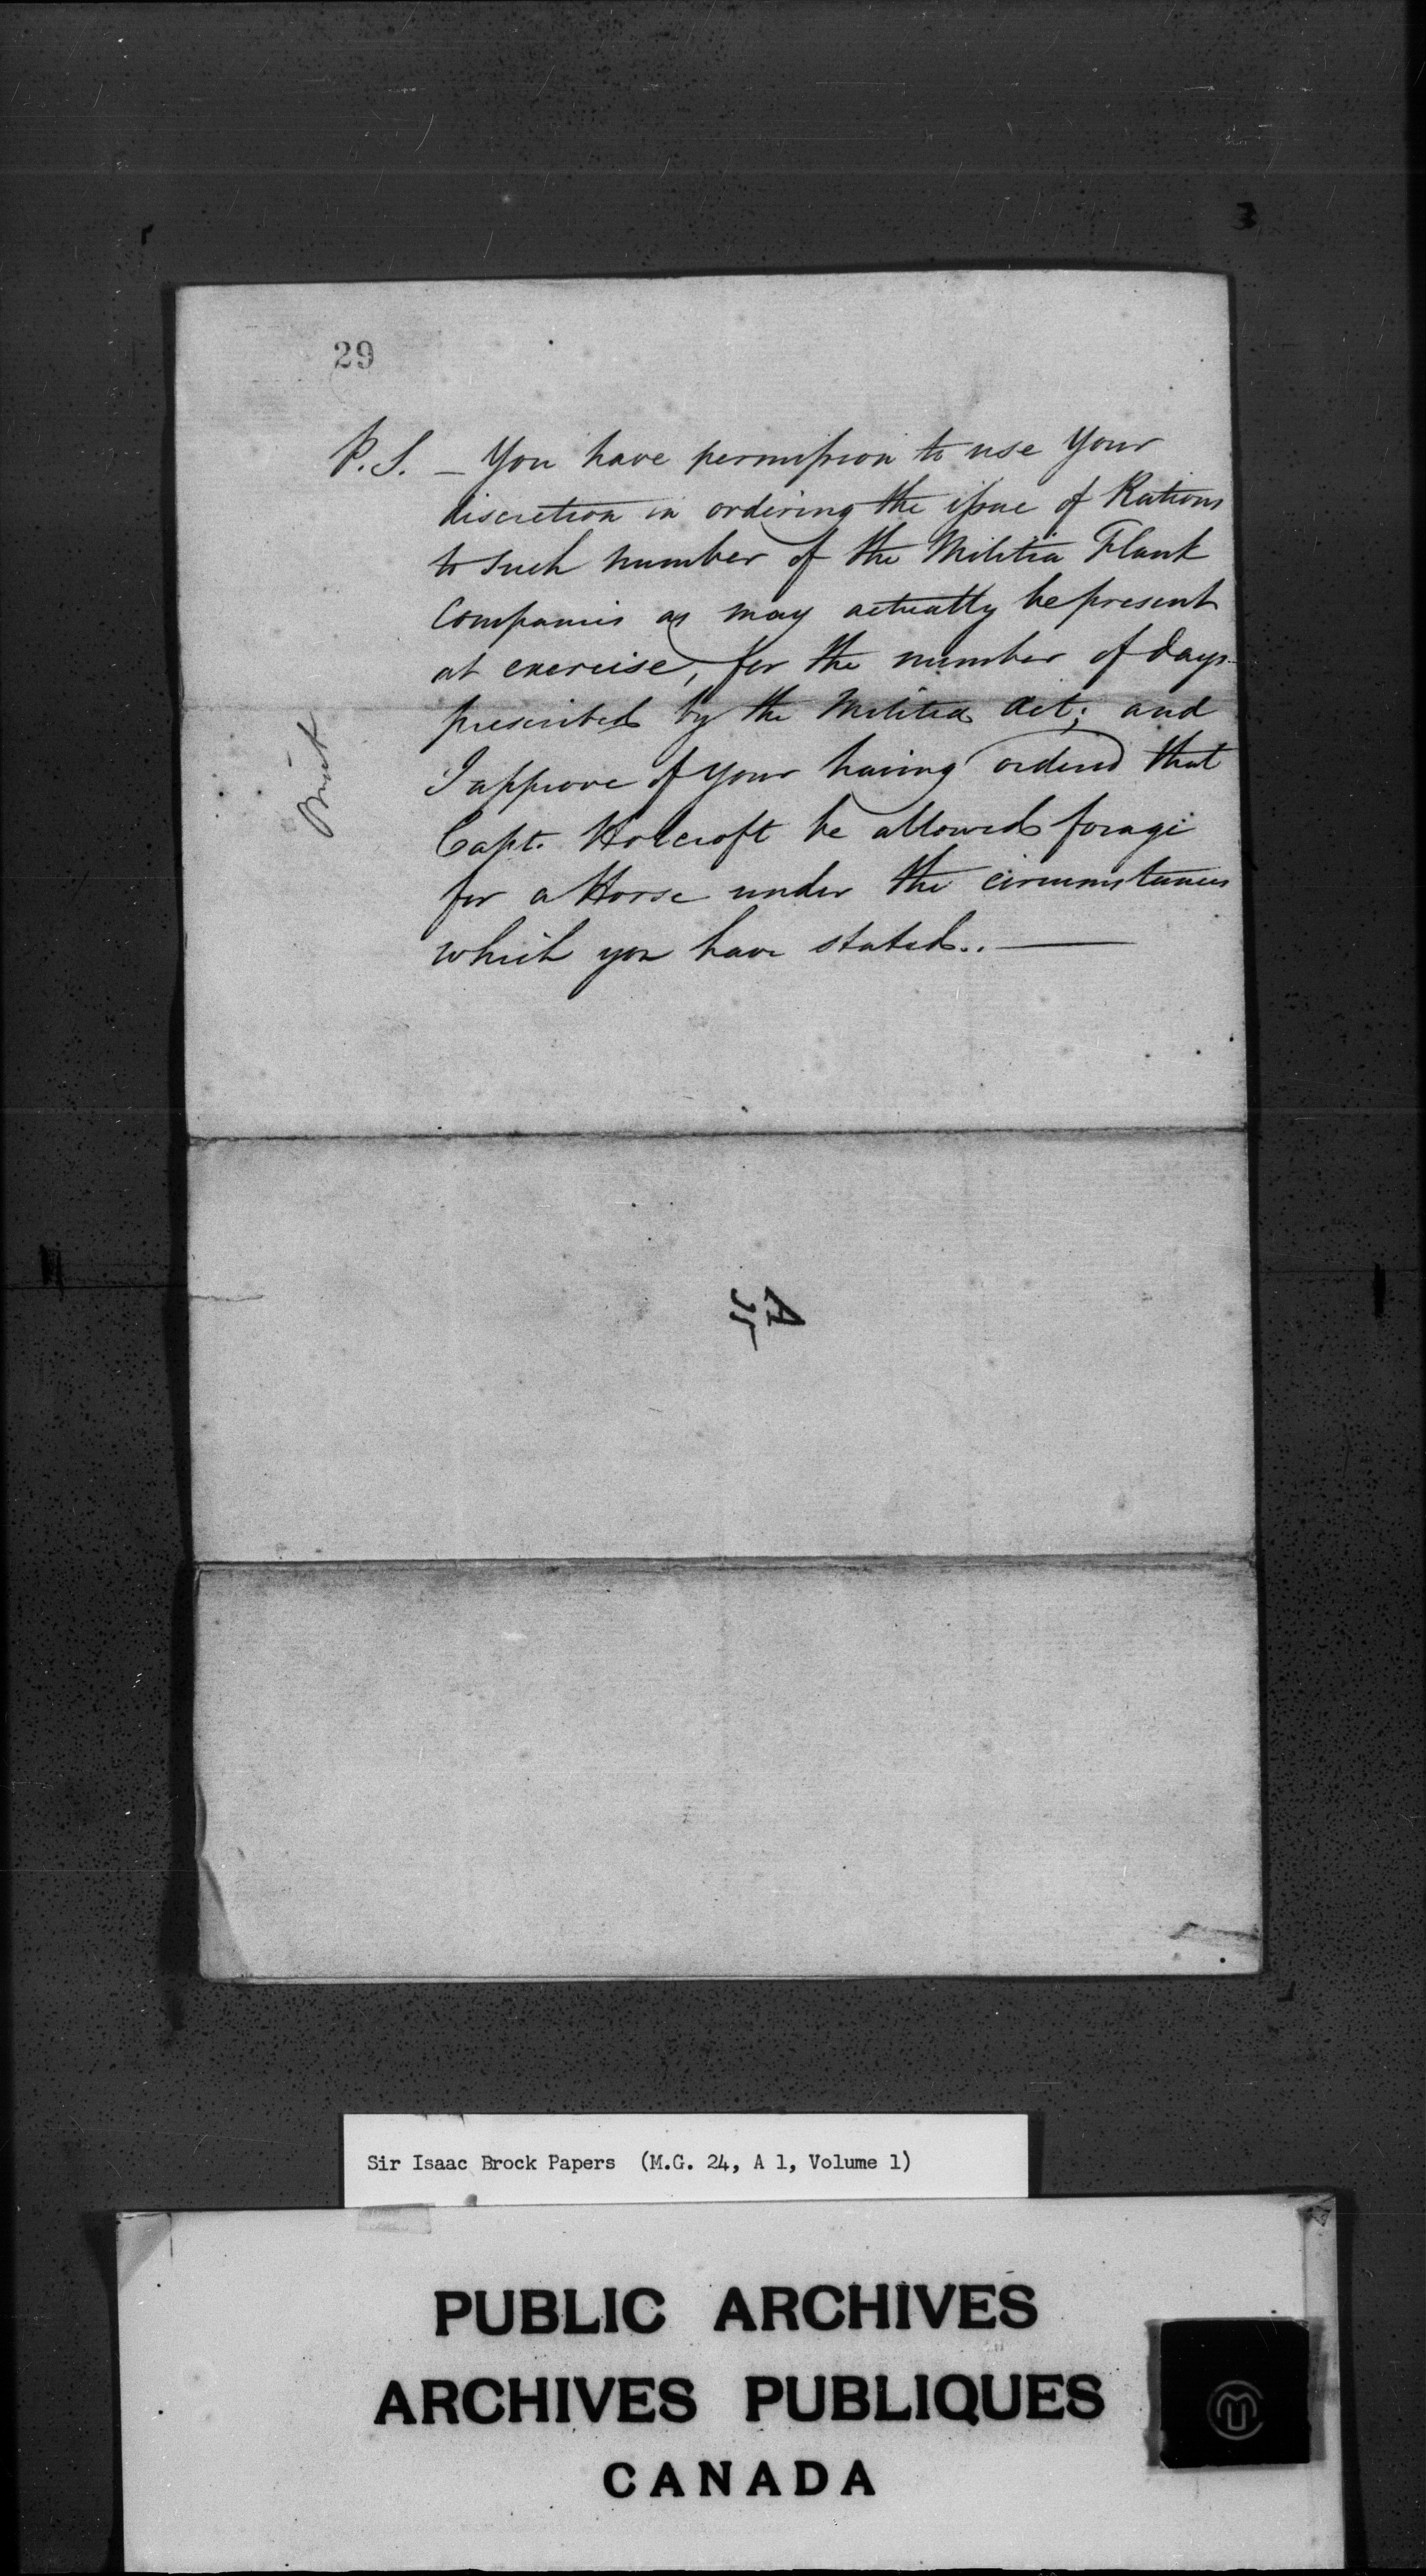 29
P.S. — You have permission to use Your
discretion in ordering the issue of Rations
to such number of the Militia Flank
Companies as may actually be present
at exercise, for the number of days
prescribed by the Militia Act; and
I approve of your having ordered that
Capt. Holcroft be allowed forage
for a Horse under the circumstances
which you have stated..—
Omit
Sir Isaac Brock Papers (M.G. 24, A 1, Volume 1)
PUBLIC ARCHIVES
ARCHIVES PUBLIQUES
CANADA